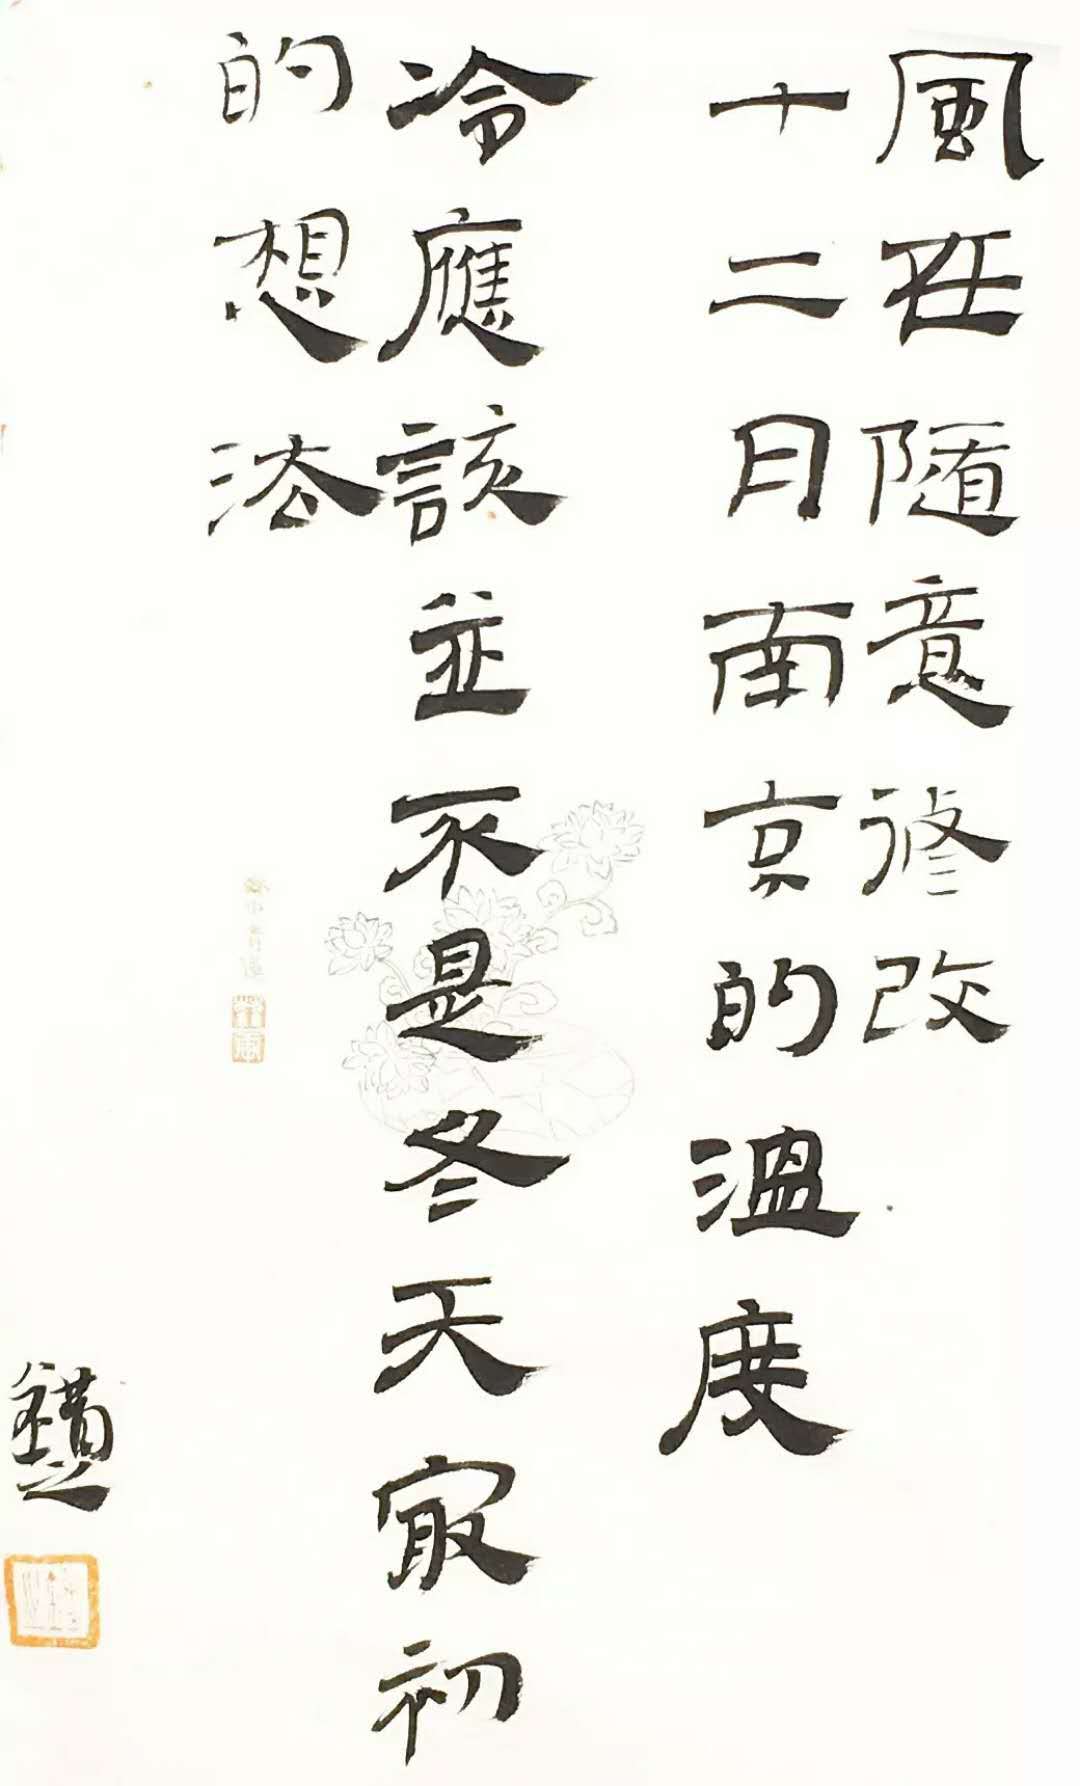 風在隨意修改
十二月南京的溫度
冷應該並不是冬天冣初
的想法